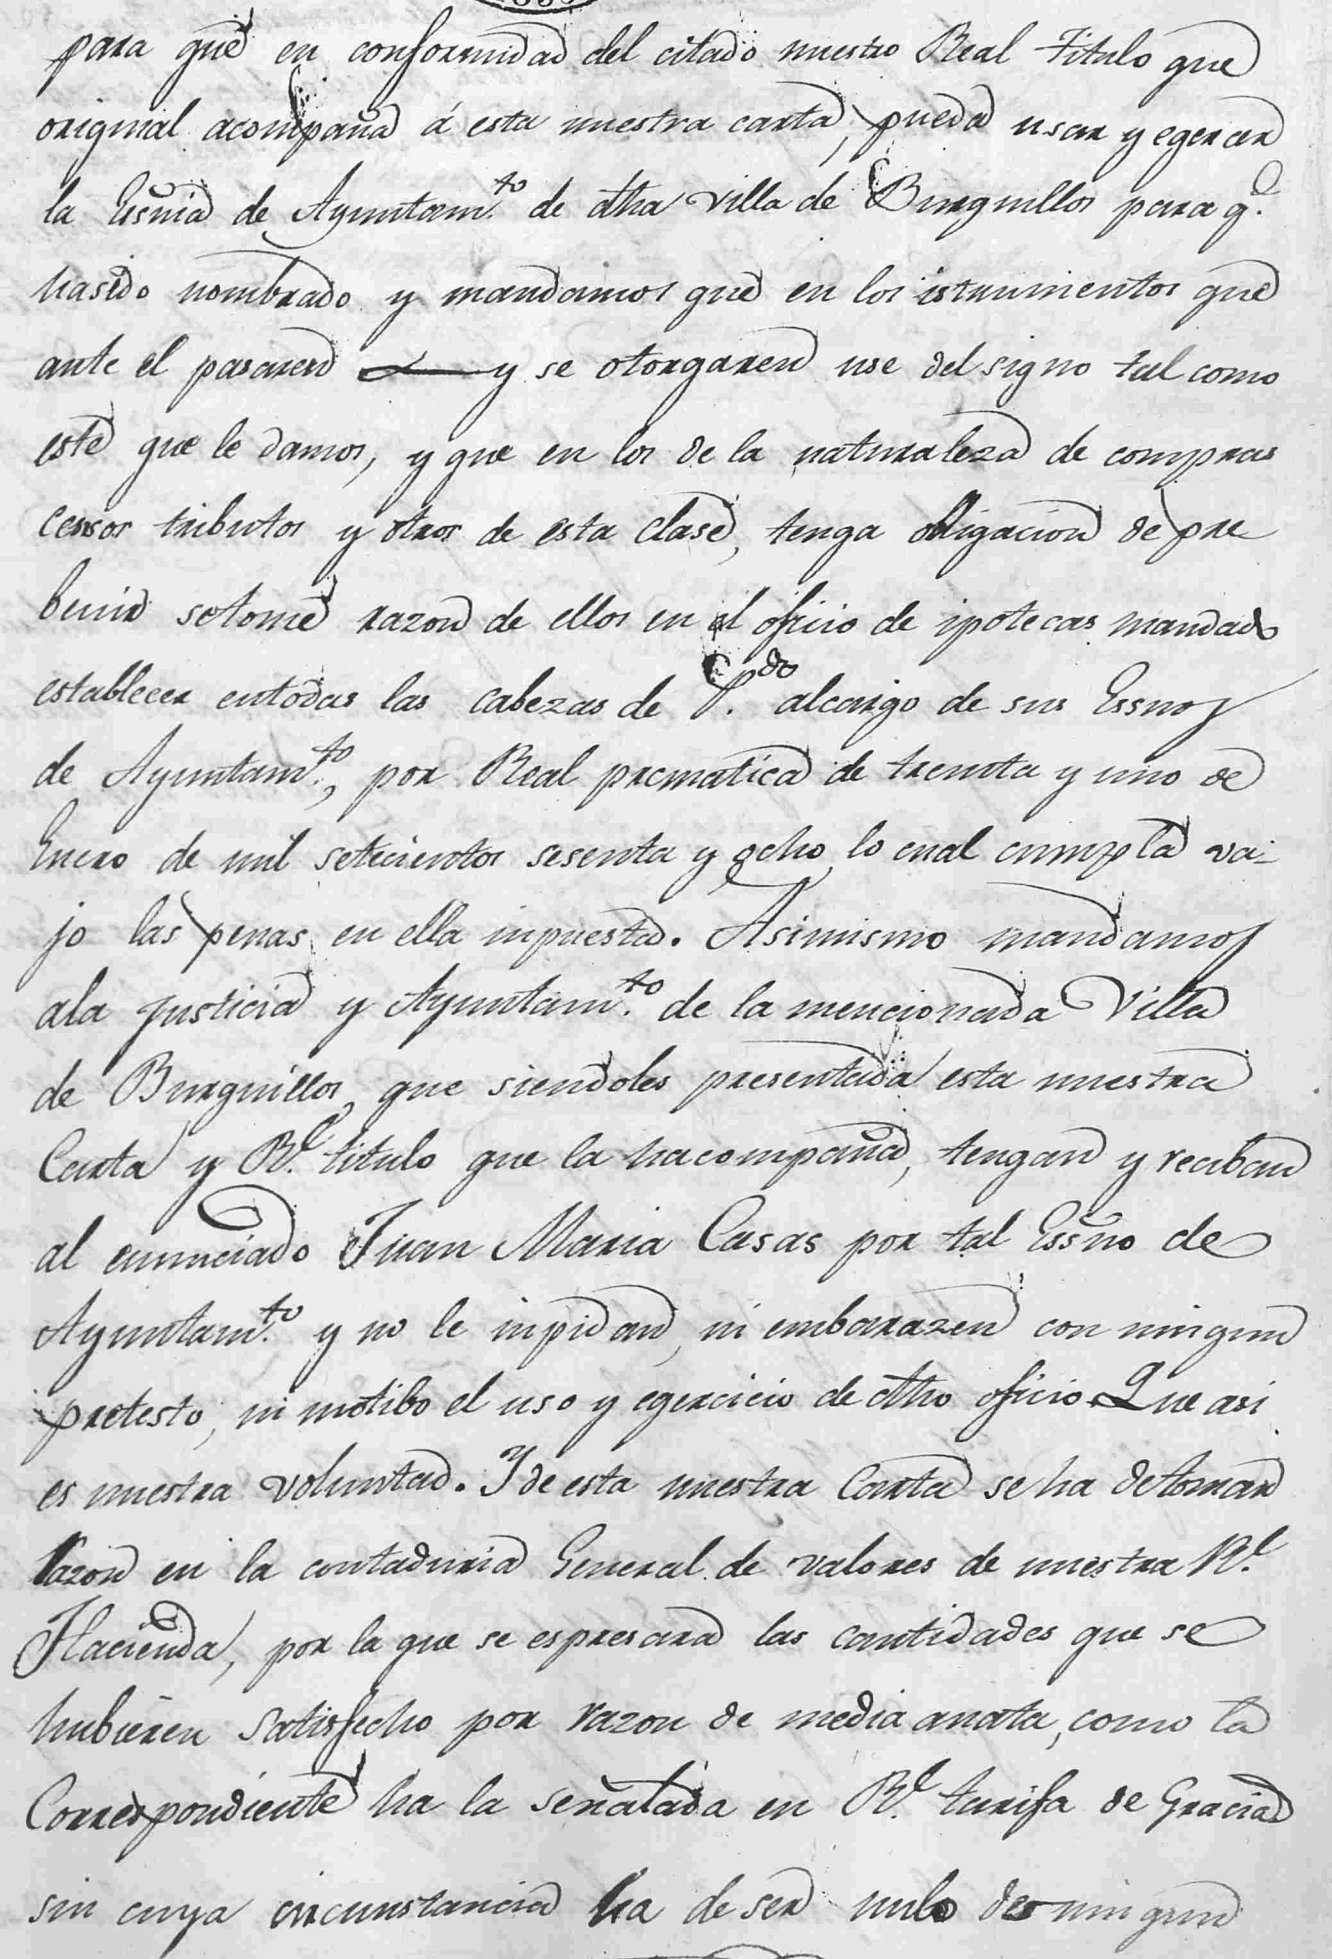 para que en conformidad del citado nuestro Real Titulo que
original acompaña á esta nuestra carta, pueda usar y egercer
la Essñia de Ayuntam.to de dha villa de Burguillos para q.e
hasido nombrado y mandamos que en los istrumentos que
ante el pasaren y se otorgaren use del signo tal como
este que le damos, y que en los de la naturaleza de compras
censos tributos y otros de esta clase, tenga obligacion de pre
benir setome razon de ellos en el oficio de ipotecas mandado
establecer entodas las cabezas de P.do alcargo de sus Essnos
de Ayuntam.to, por Real precmatica de treinta y uno de
Enero de mil setecientos sesenta y ocho, lo cual cumpla va-
jo las penas en ella inpuesta. Asimismo mandamos
ala justicia y Ayuntam.to de la mencionada Villa
de Burguillos, que siendoles presentada esta nuestra
Carta y R.l titulo que la hacompaña, tengan y reciban
al enunciado Juan Maria Casas por tal Essño de
Ayuntam.to y no le inpidan, ni embarazen con ningun
pretesto, ni motibo el uso y egercicio de dho oficio. Que asi
es nuestra voluntad. Y de esta nuestra Carta se ha detomar
razon en la contaduria General de valores de nuestra R.l
Hacienda, por la que se espresara las cantidades que se
hubieren satisfecho por razon de media anata, como la
Correspondiente ha la señalada en R.l tarifa de Gracias
sin cuya circunstancia ha de ser nulo de ningun